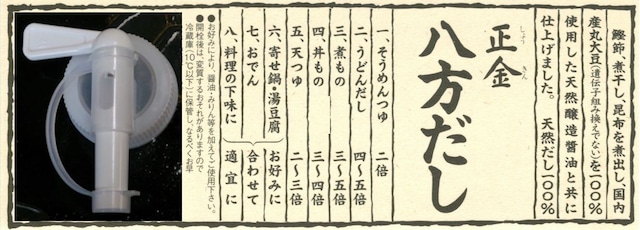 鰹節、煮干し、昆布を煮出し、国内
産丸大豆(遺伝子組み換えでない)を一〇〇%
使用した天然醸造醤油と共に
仕上げました。 天然だし一〇〇%
正金
しょうきん
八方だし
一、そうめんつゆ 二倍
二、うどんだし 四〜五倍
三、煮もの 三〜五倍
四、丼もの 三〜四倍
五、天つゆ 二〜三倍
六、寄せ鍋・湯豆腐 お好みに
七、おでん 合わせて
八、料理の下味に 適宜に
●お好みにより、醤油・みりん等を加えてご使用下さい。
●開栓後は、変質するおそれがありますので
冷蔵庫(10℃以下)に保管し、なるべくお早